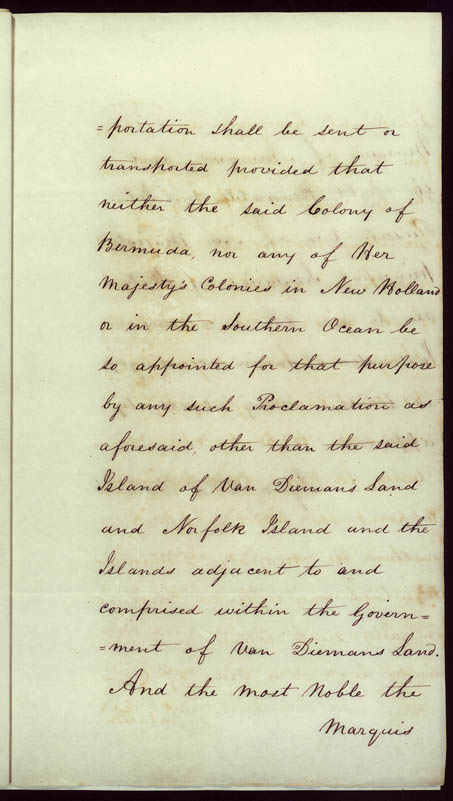 =portation shall be sent or
transported provided that
neither the said Colony of
Bermuda, nor any of Her
Majesty's Colonies in New Holland
or in the Southern Ocean be
so appointed for that purpose
by any such Proclamation as
aforesaid, other than the said
Island of Van Diemans Land
and Norfolk Island and the
Islands adjacent to and
comprised within the Govern=
=ment of Van Diemans Land.
And the most Noble the
Marquis